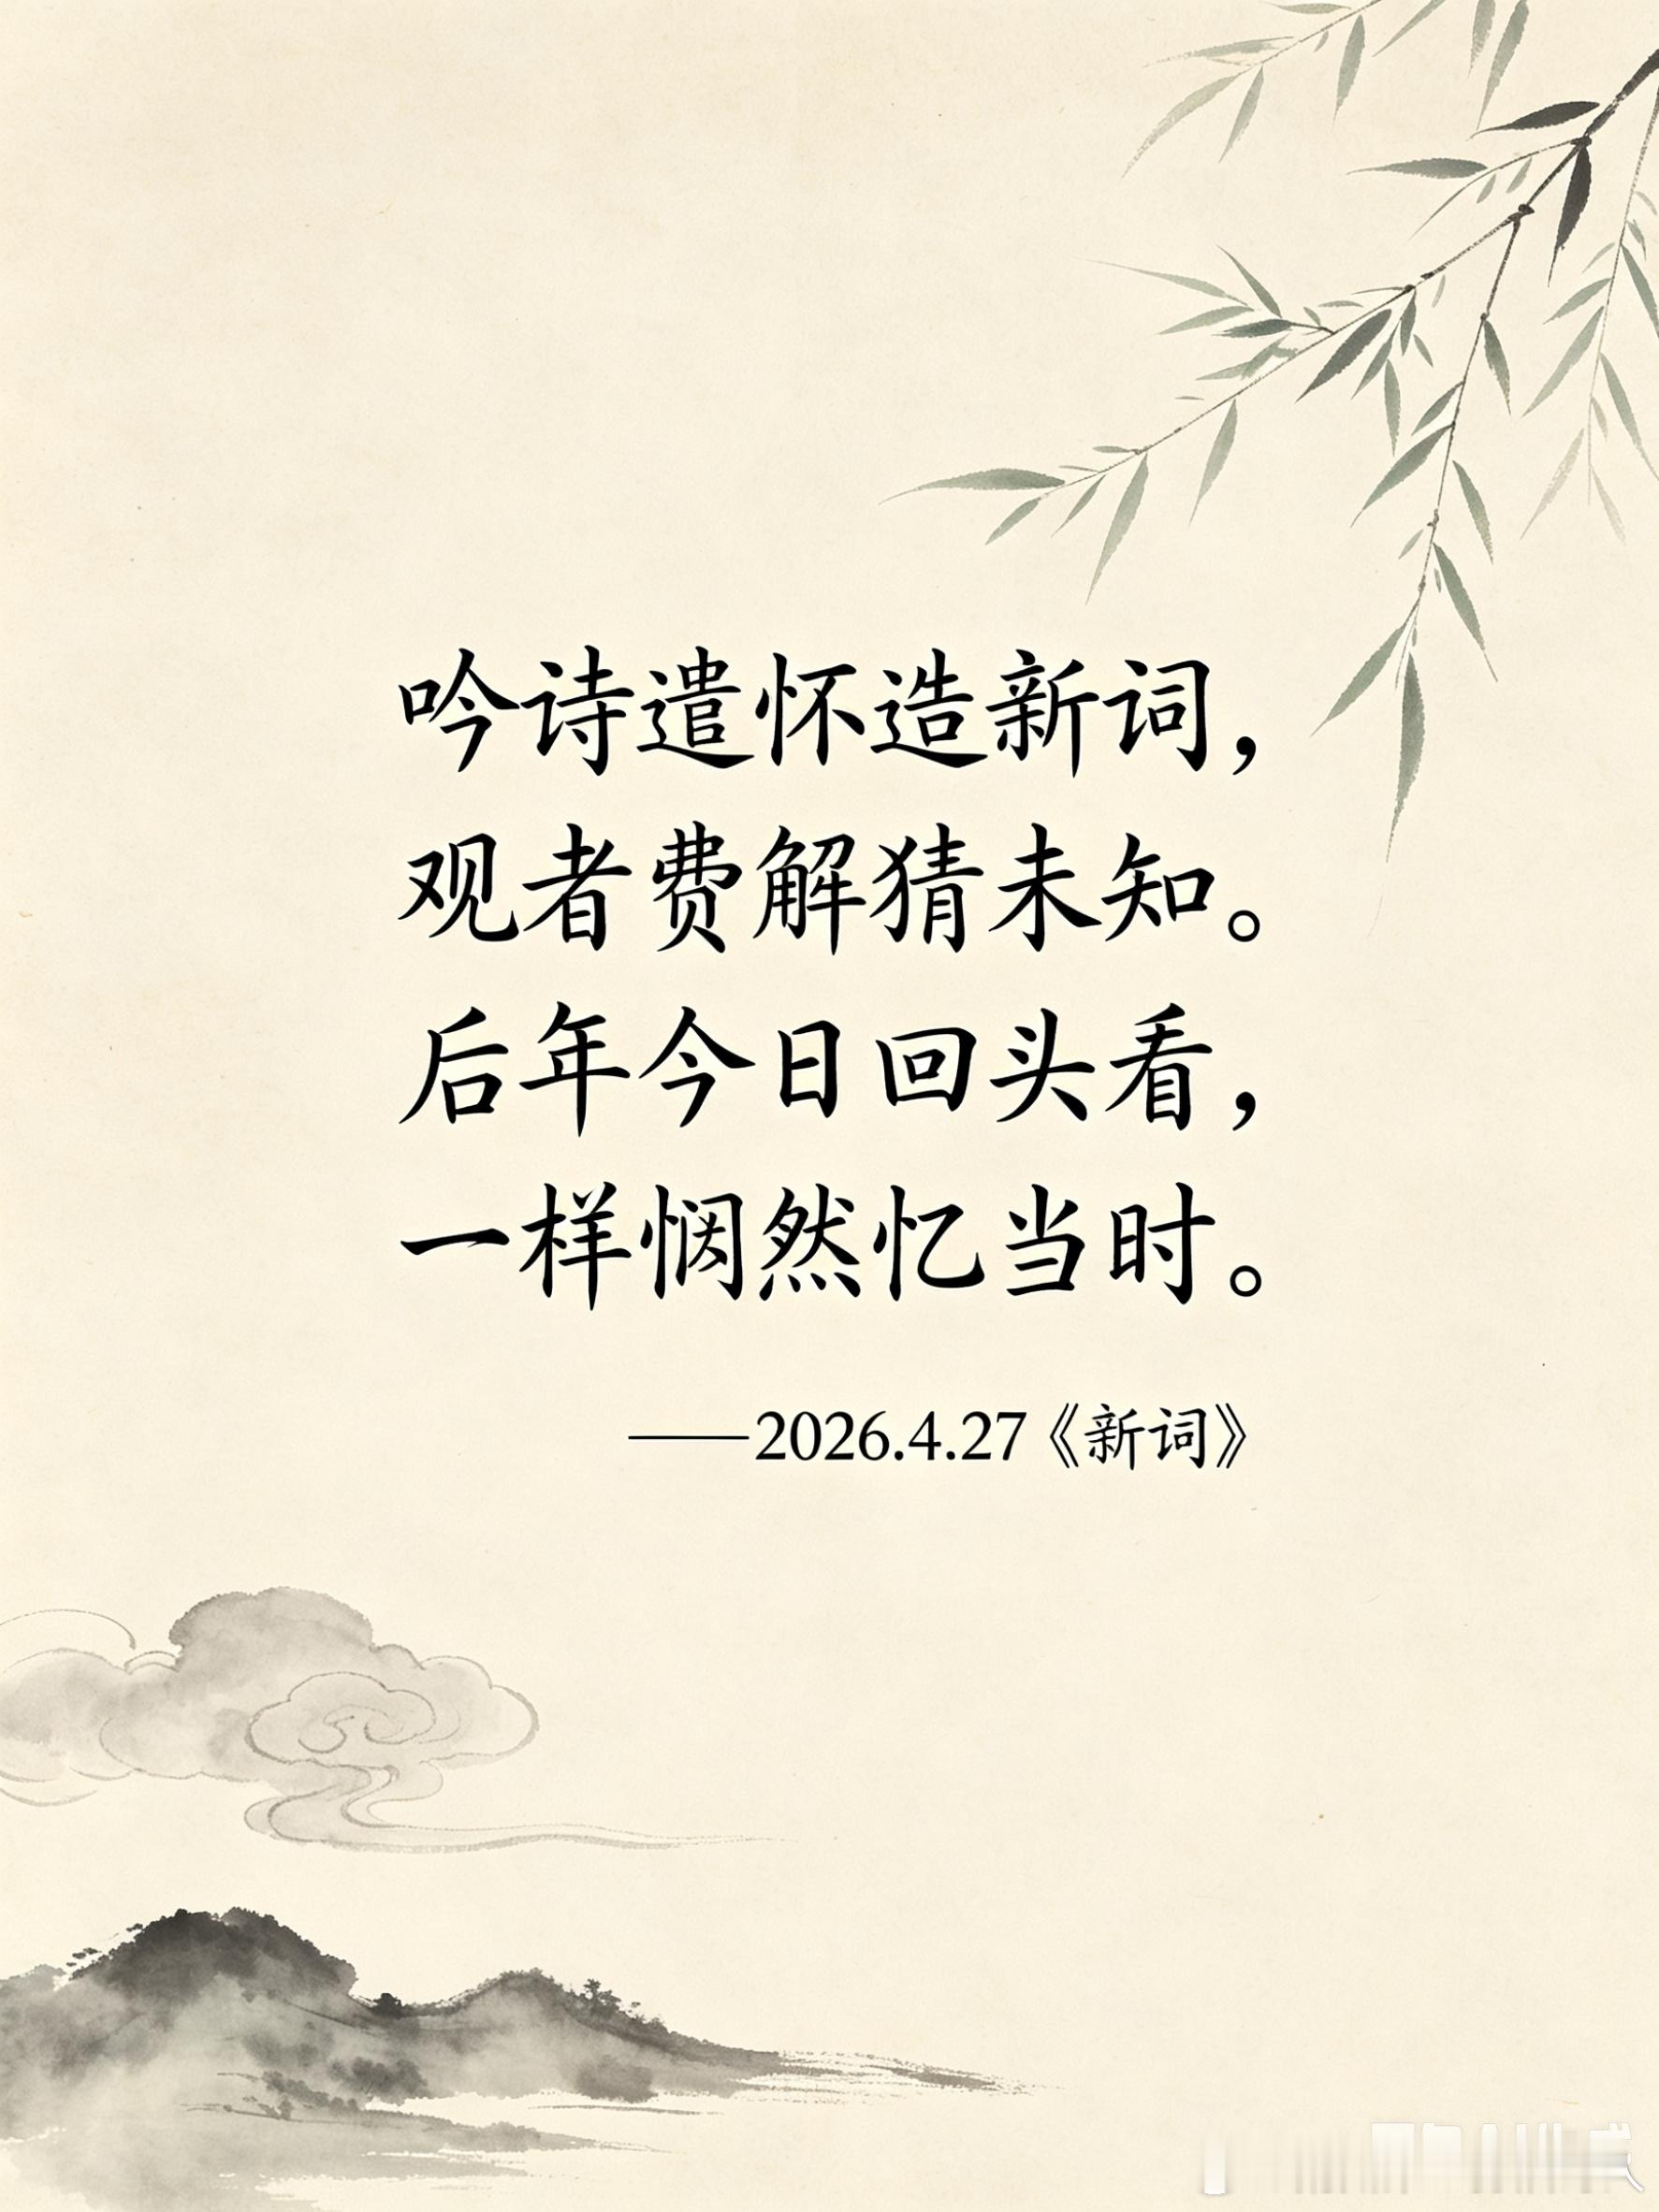 吟诗遣怀造新词，
观者费解猜未知。
后年今日回头看，
一样惘然忆当时。
——2026.4.27《新词》